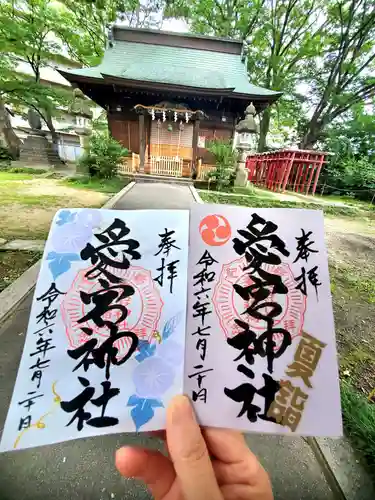 奉拝
愛宕神社
令和六年七月二十日
奉拝
愛宕神社
夏詣
令和六年七月二十日